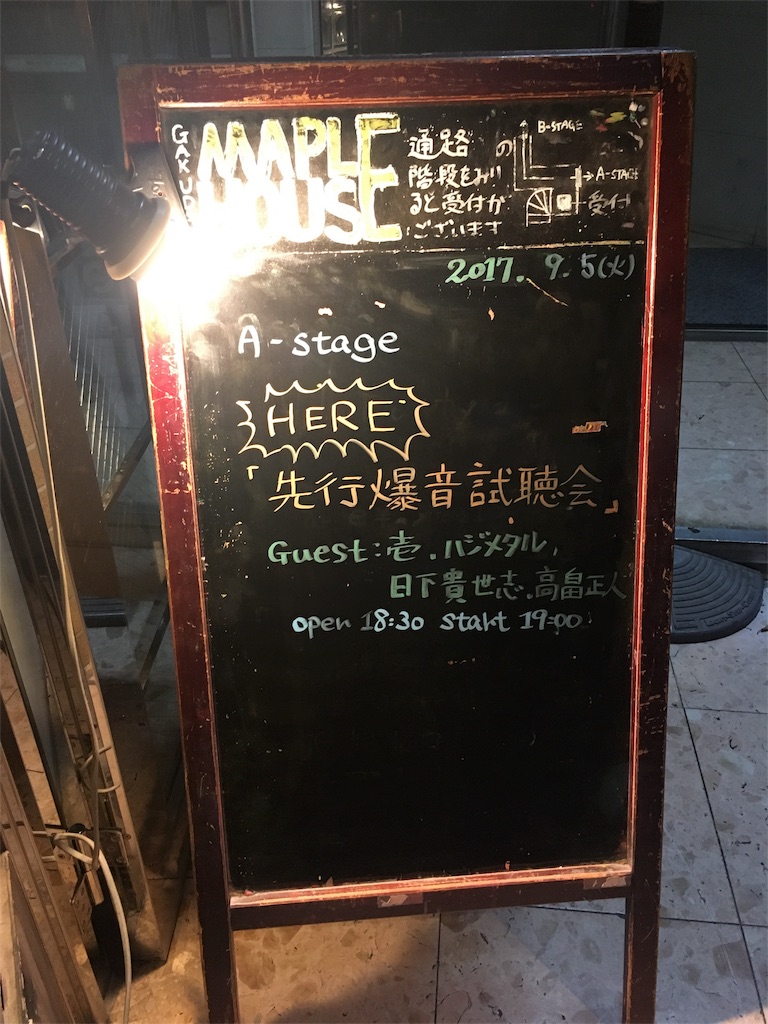 GAKUYA
MAPLE
HOUSE
通路の
階段をみ
ると受付が
ございます
B-STAGE
A-STAGE
受付
2017. 9. 5(火)
A-stage
HERE
「先行爆音試聴会」
Guest:壱.ハジメタル,
日下貴世志.高畠正人
open 18:30 start 19:00